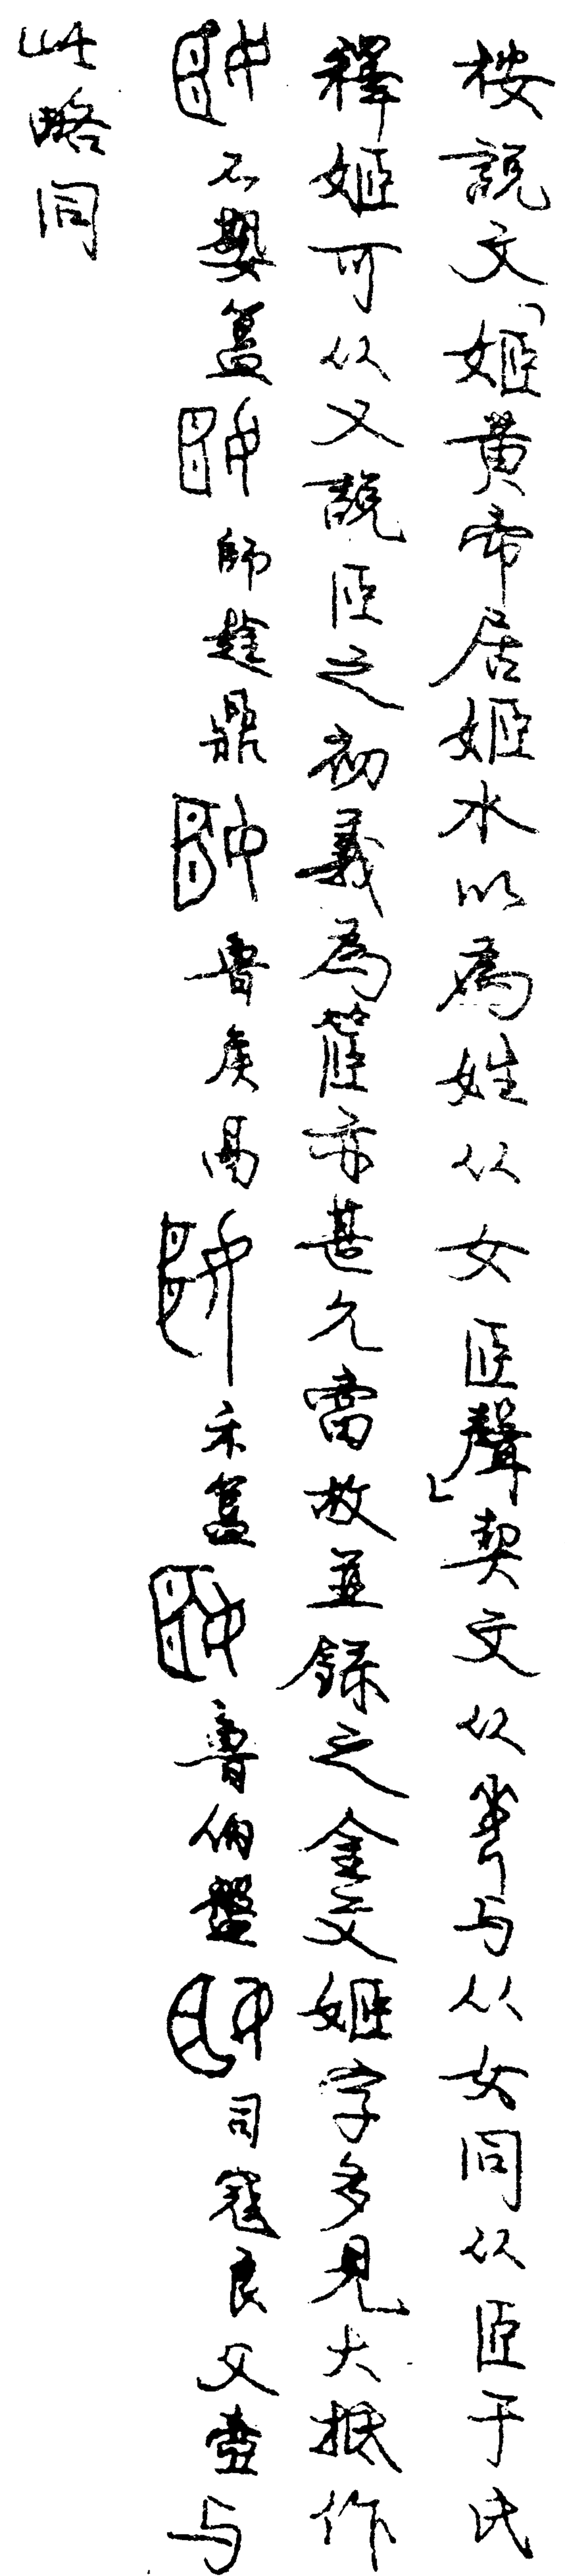 按說文「姬黃帝居姬水以為姓从女𦣞聲」契文从每与从女同从𦣞于氏
釋姬可从又說𦣞之初義為篚亦甚允當故並錄之金文姬字多見大抵作
不嬰簋師趛鼎魯侯鬲禾簋魯伯盤司寇良父壺与
此略同